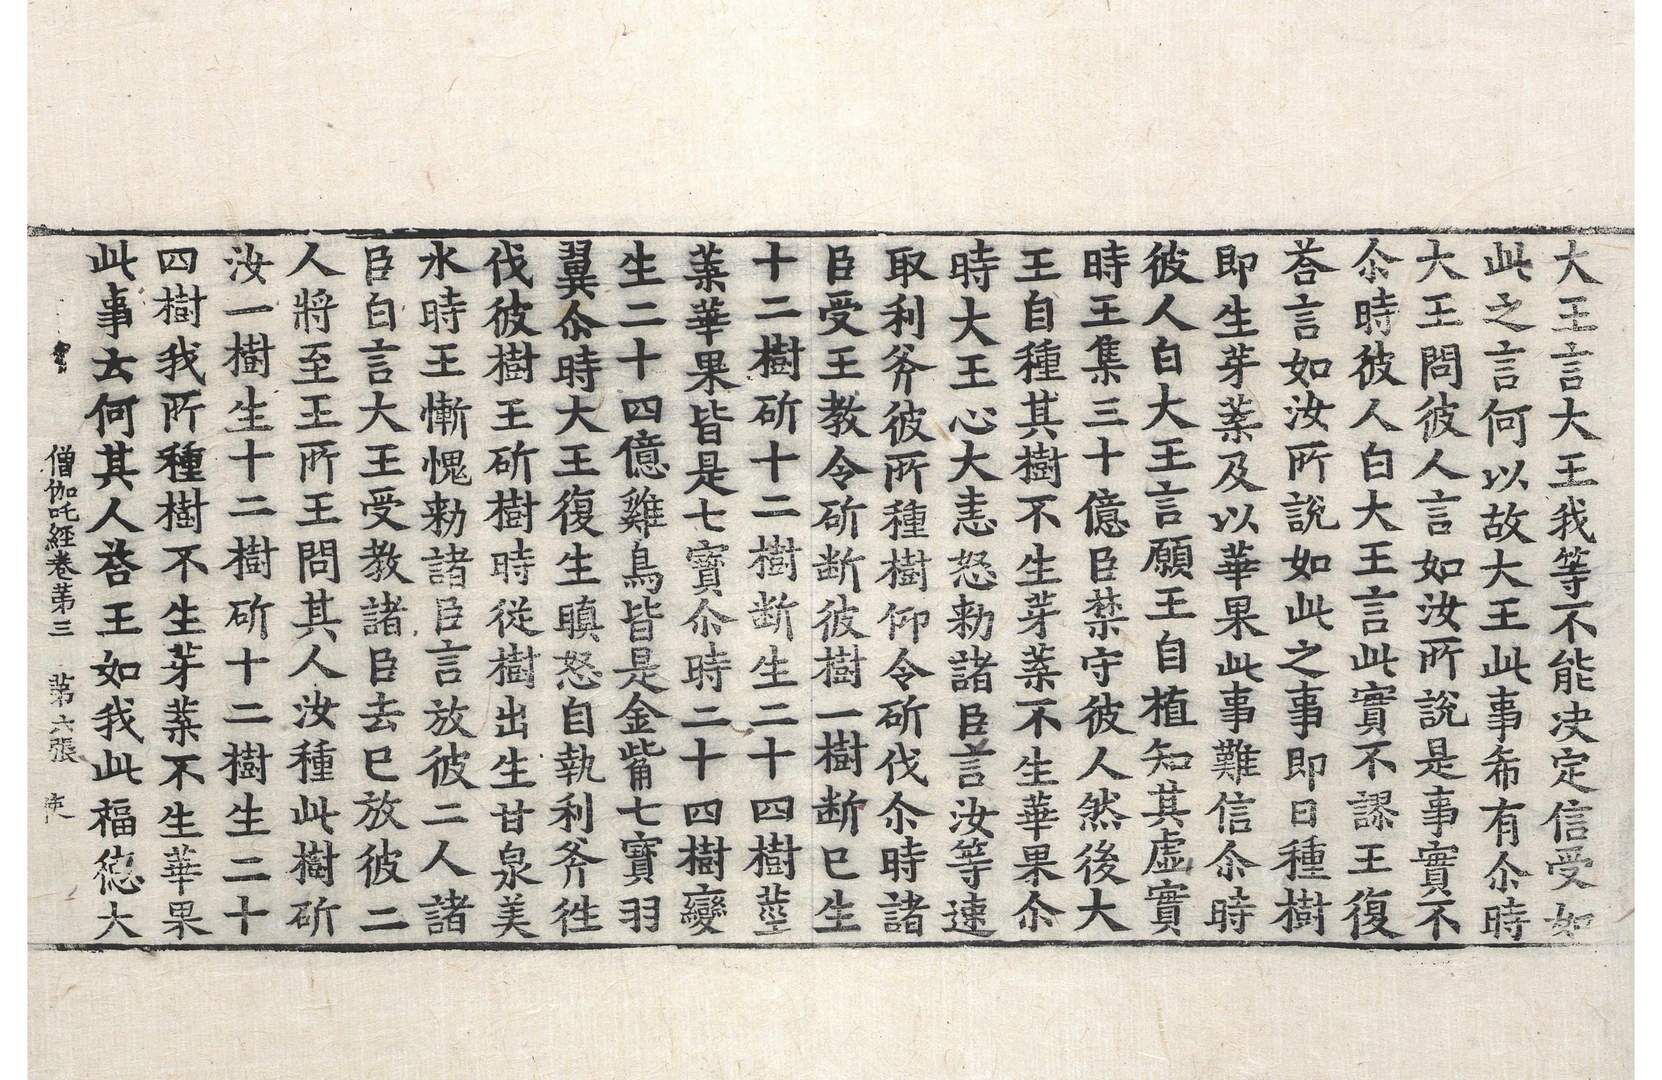 大王言大王我等不能决定信受如
此之言何以故大王此事希有尒時
大王問彼人言如汝所說是事實不
尒時彼人白大王言此實不謬王復
荅言如汝所說如此之事即日種樹
即生芽葉及以華果此事難信尒時
彼人白大王言願王自植知其虛實
時王集三十億臣禁守彼人然後大
王自種其樹不生芽葉不生華果尒
時大王心大恚怒勑諸臣言汝等速
取利斧彼所種樹仰令斫伐尒時諸
臣受王教令斫断彼樹一樹断已生
十二樹斫十二樹断生二十四樹莖
葉華果皆是七寶尒時二十四樹變
生二十四億雞鳥皆是金觜七寶羽
翼尒時大王復生瞋怒自執利斧徃
伐彼樹王斫樹時從樹出生甘泉美
水時王慚愧勑諸臣言放彼二人諸
臣白言大王受教諸臣去已放彼二
人將至王所王問其人汝種此樹斫
汝一樹生十二樹斫十二樹生二十
四樹我所種樹不生芽葉不生華果
此事云何其人荅王如我此福德大
僧伽吒經卷第三 第六張